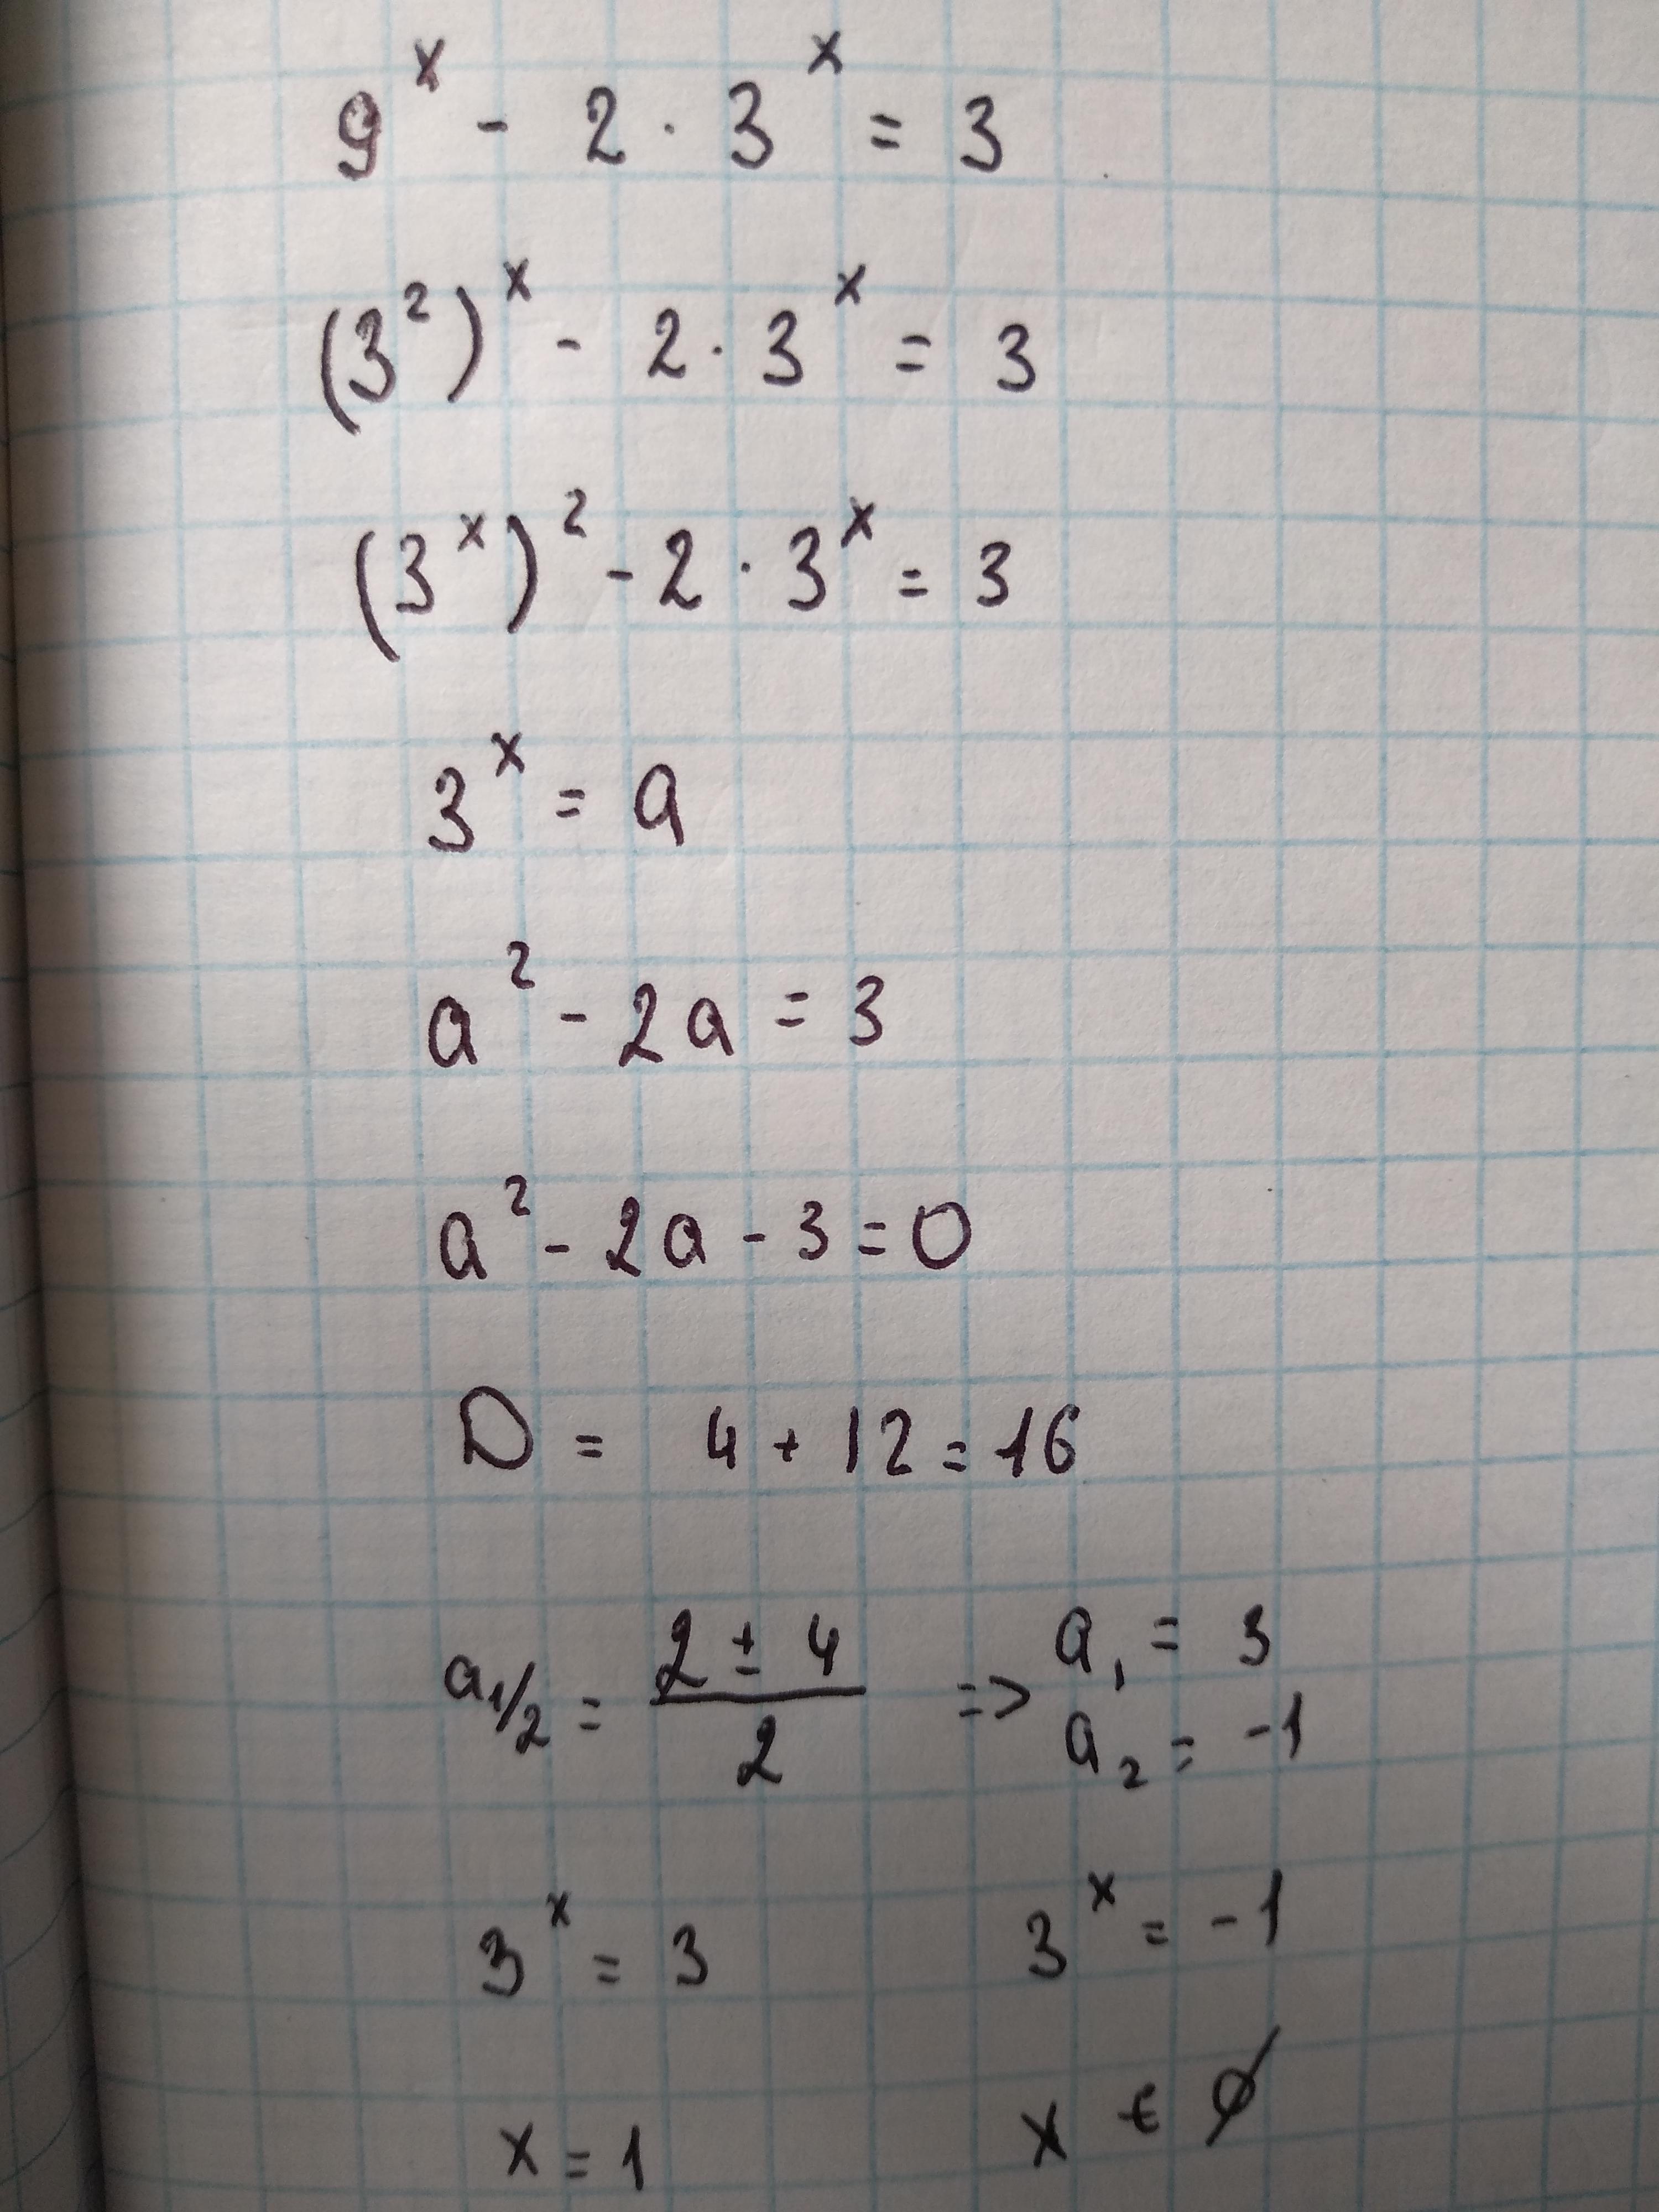 9^x - 2 · 3^x = 3
(3^2)^x - 2 · 3^x = 3
(3^x)^2 - 2 · 3^x = 3
3^x = a
a^2 - 2a = 3
a^2 - 2a - 3 = 0
D = 4 + 12 = 16
a_1/2 = (2 ± 4)/2 => a_1 = 3
a_2 = -1
3^x = 3 3^x = -1
x = 1 x ∈ ∅